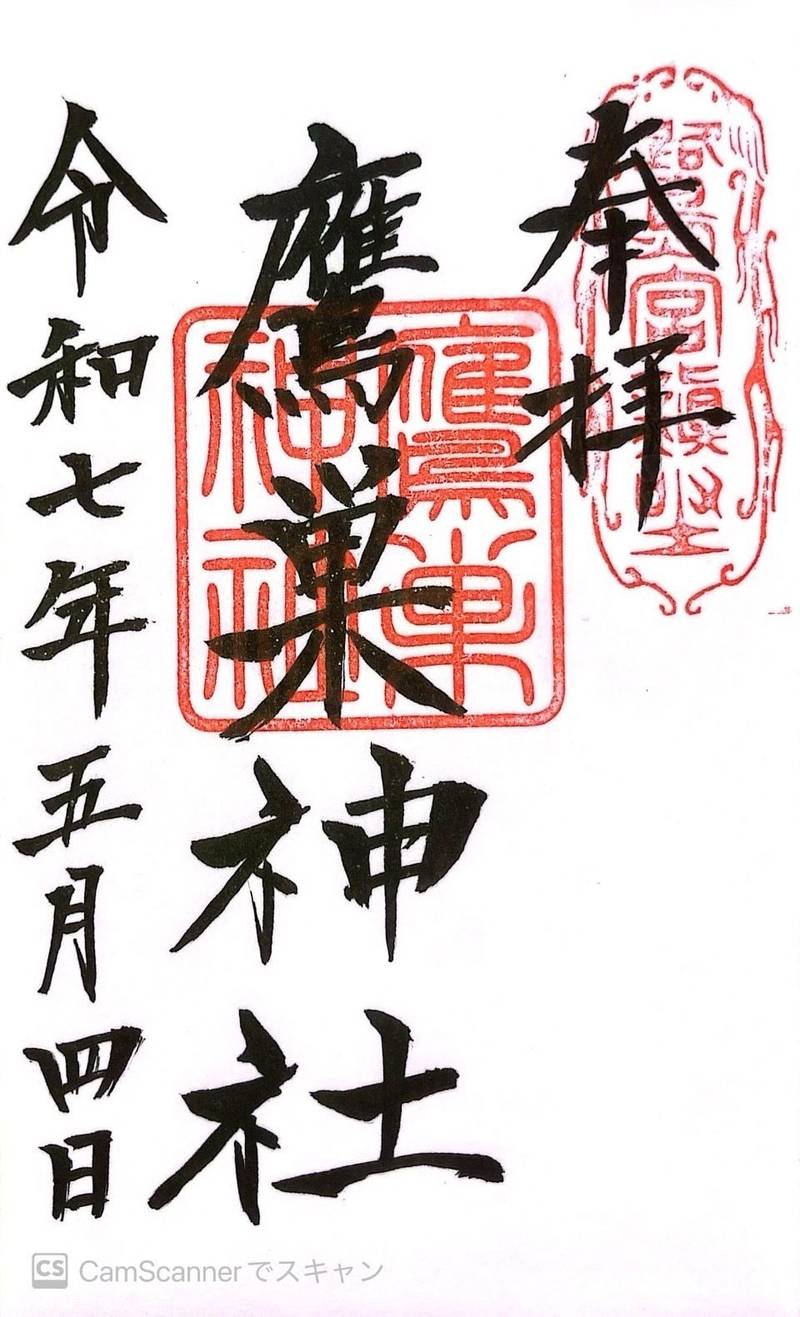 奉拝
鷹巣神社
鷹巣
神社
令和七年五月四日
CS CamScannerでスキャン